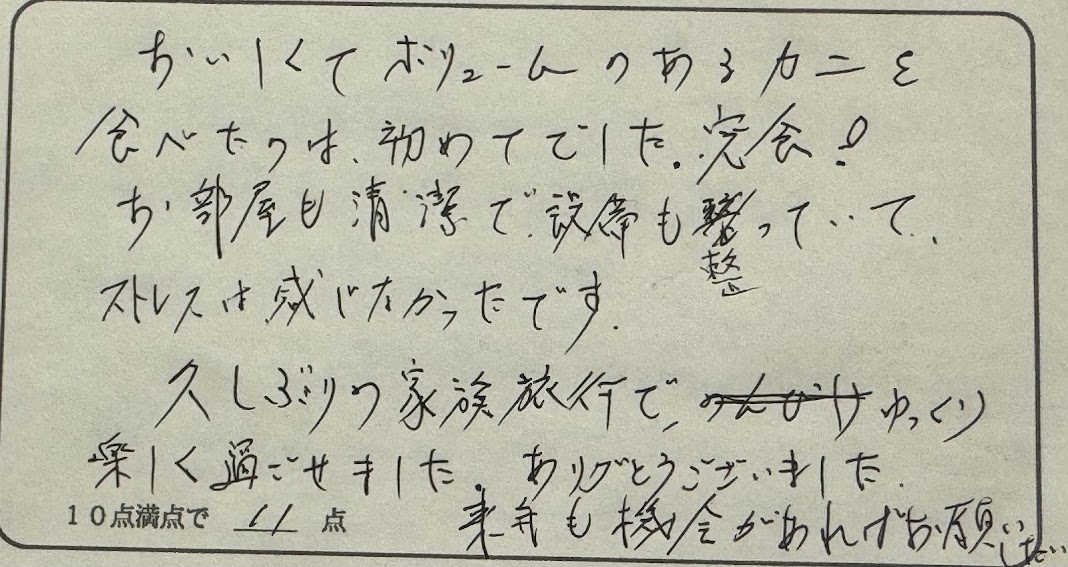 おいしくてボリュームのあるカニを
食べたのは、初めてでした。完食!
お部屋も清潔で、設備も整っていて、
整
ストレスは感じなかったです。
久しぶりの家族旅行で、のんびり ゆっくり
楽しく過ごせました。ありがとうございました。
10点満点で 11 点
来年も機会があればお願いしたい